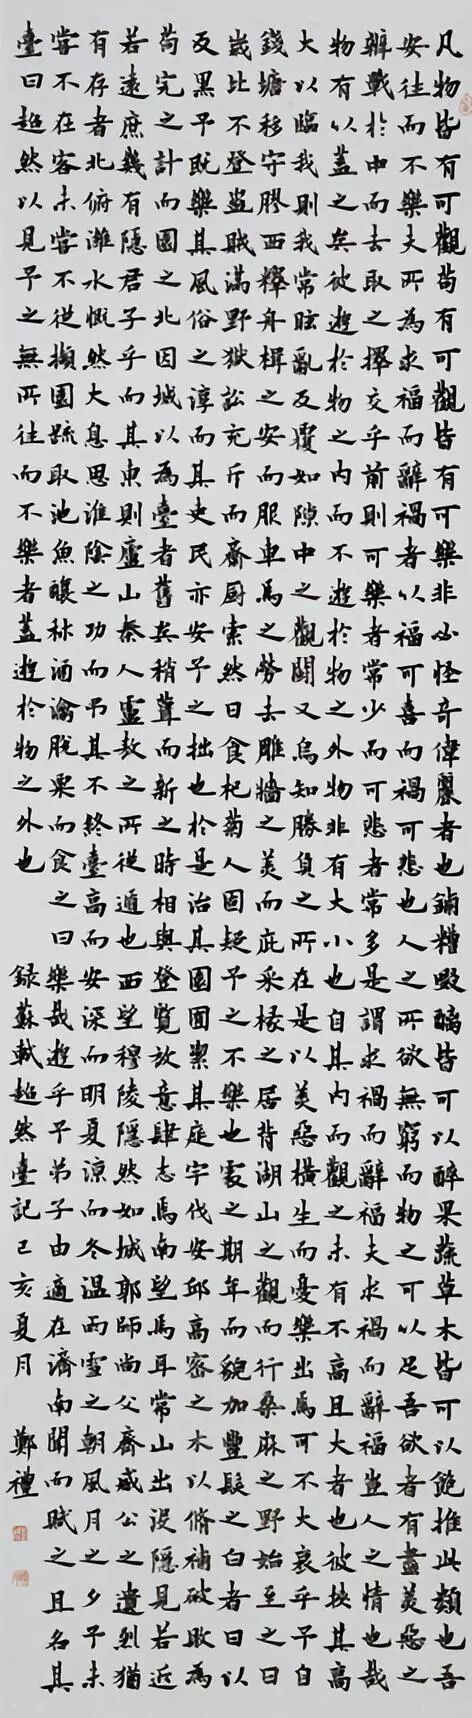 凡物皆有可觀苟有可觀皆有可樂非必怪奇偉麗者也餔糟啜醨皆可以醉果蔬草木皆可以飽推此類也吾
安往而不樂夫所為求福而辭禍者以福可喜而禍可悲也人之所欲無窮而物之可以足吾欲者有盡美惡之
辨戰於中而去取之擇交乎前則可樂者常少而可悲者常多是謂求禍而辭福夫求禍而辭福豈人之情也哉
物有以蓋之矣彼遊於物之內而不遊於物之外物非有大小也自其內而觀之未有不高且大者也彼挾其高
大以臨我則我常眩亂反覆如隙中之觀鬪又烏知勝負之所在是以美惡橫生而憂樂出焉可不大哀乎予自
錢塘移守膠西釋舟楫之安而服車馬之勞去雕牆之美而庇采椽之居背湖山之觀而行桑麻之野始至之日
歲比不登盜賊滿野獄訟充斥而齋厨索然日食杞菊人固疑予之不樂也處之期年而貌加豐髮之白者日以
反黑予既樂其風俗之淳而其吏民亦安予之拙也於是治其園囿潔其庭宇伐安邱高密之木以脩補破敗為
苟完之計而園之北因城以為臺者舊矣稍葺而新之時相與登覽放意肆志焉南望馬耳常山出沒隱見若近
若遠庶幾有隱君子乎而其東則廬山秦人盧敖之所從遁也西望穆陵隱然如城郭師尚父齊威公之遺烈猶
有存者北俯濰水慨然大息思淮陰之功而吊其不終臺高而安深而明夏涼而冬溫雨雪之朝風月之夕予未
嘗不在客未嘗不從擷園蔬取池魚釀秫酒瀹脫粟而食之曰樂哉遊乎予弟子由適在濟南聞而賦之且名其
臺曰超然以見予之無所往而不樂者蓋遊於物之外也
錄蘇軾超然臺記己亥夏月
鄭禮